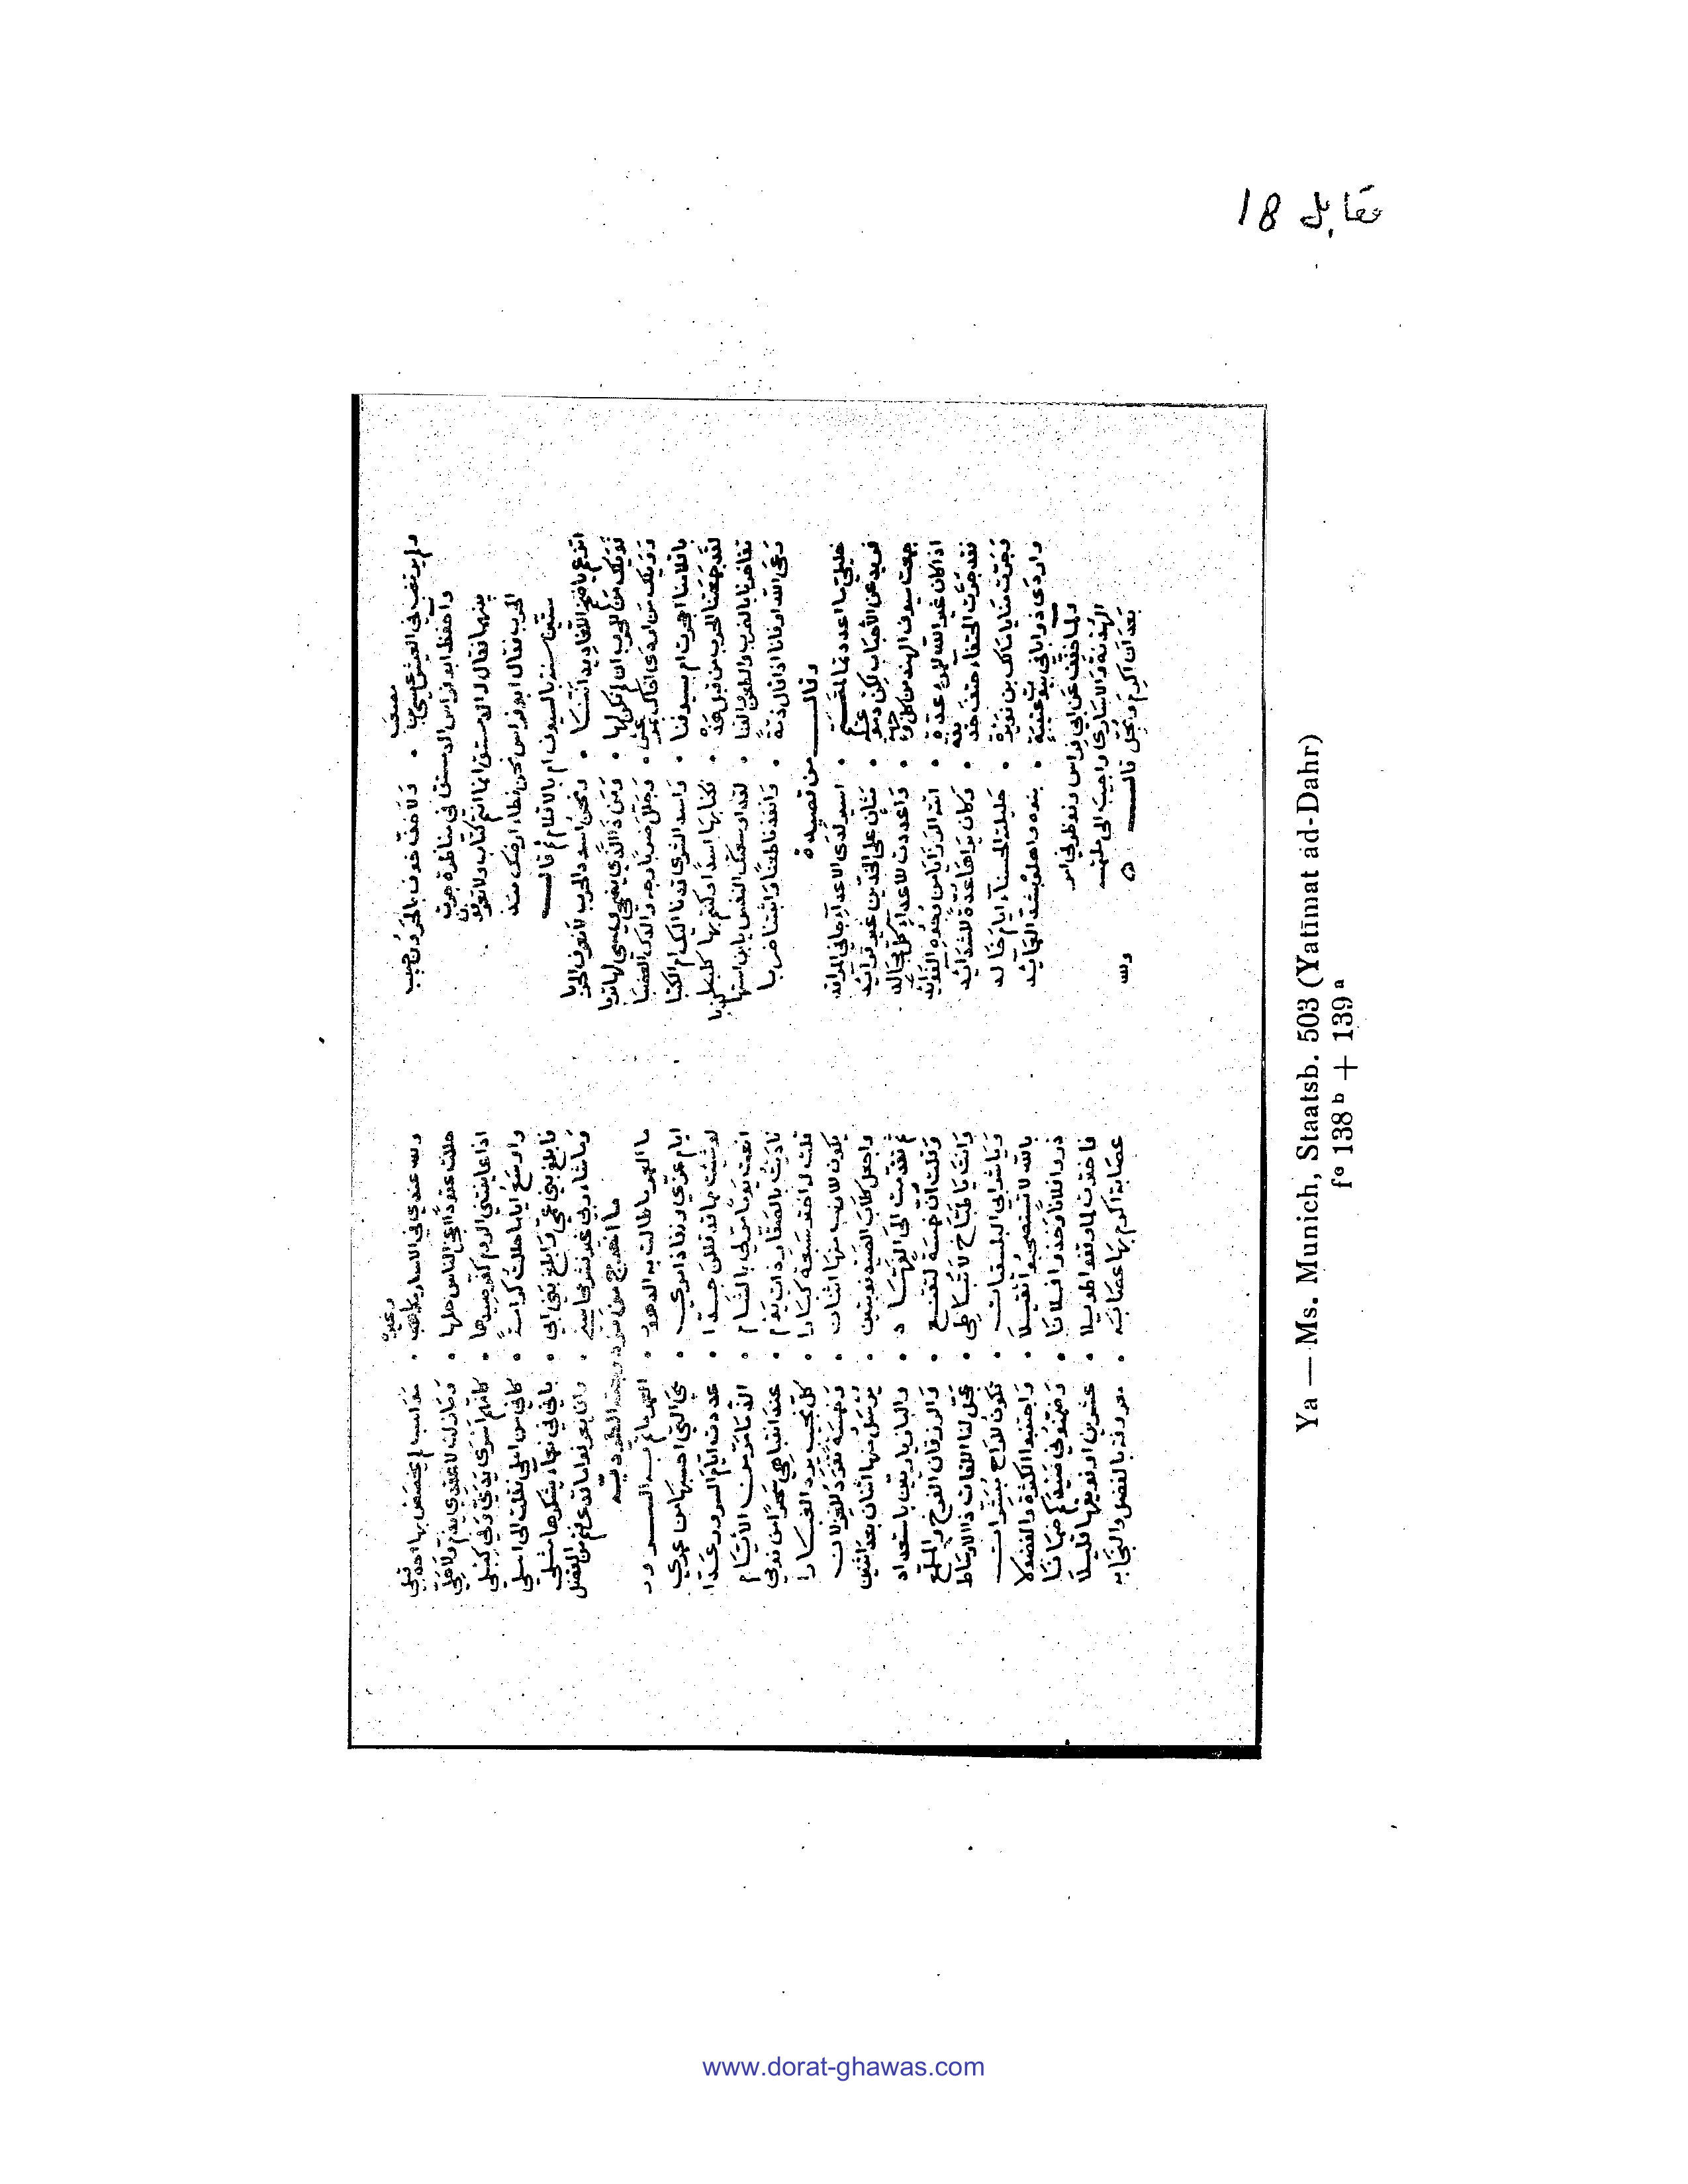 مقابل 18
ولم يرتغب في العيش عيسى بن مصعب • ولا خف خوف الحرون حبيب
واحفظ ابو فراس الدمستق في مناظرة جرت
بينهما فقال له الدمستق انما انتم كتاب ولا تعرفون
الحرب فقال ابو فراس نحن نطاء ارضك منذ
ستين سنة بالسيوف ام بالاقلام ثم قال
اتزعم يا ضخم اللغاديد اننا • ونحن اسود الحرب لا نعرف الحربا
فويلك من للحرب ان لم نكن لها • ومن ذا الذي يضحي ويمسي لها تربا
وويلك من اردى اخاك بمرعش • وجلل ضربا وجه والدك العضبا
باقلامنا اجحرت ام بسيوفنا • واسد الشرى قدنا اليك ام الكتبا
لقد جمعتنا الحرب من قبل هذه • فكنا بها اسدا وكنتم بها كلبا
تفاخرنا بالضرب والطعن والقنا • لقد اوسعتك النفس يا بن استها كذبا
رعى الله اوفانا اذا قال ذمة • وانفذنا طعنا واثبتنا ضربا
وقال من قصيدة
خليلي ما اعددتما لمتيم • اسير لدى الاعداء جافي المراقد
فريد عن الأحباب لكن دموعه • مثان على الخدين غير فرائد
جمعت سيوف الهند من كل وجهة • واعددت للاعداء كل مجالد
اذا كان غير الله للمرء عدة • اتته الرزايا من وجوه الفوائد
فقد جرت الحنفاء حتف حذيفة • وكان يراها عدة للشدائد
وجرت منايا مالك بن نويرة • حليلته الحسناء ايام خالد
واردى ذوابا في بيوت عتيبة • بنوه واهلوه بشدو القصائد
ولما خفف عن ابي فراس ونوظر في امر
الهدنة والاسارى واجيب الى ملتمسه
بعد ان اكرم وبجل قال
ولله عندي في الاسار وغيره • مواهب لم يخصص بها احد قبلي
حللت عقودا اعجز الناس حلها • وما زلت لا عقدي يذم ولا حلي
اذا عاينتني الروم كفر صيدها • كانهم اسرى يدي وفي كبلي
واوسع ايا ما حللت كرامة • كاني من اهلي نقلت الى اهلي
فابلغ بني عمي وابلغ بني ابي • باني في نعماء يشكرها مثلي
وما شاء ربي غير نشر محاسني • وان يعرفوا ما قد عرفتم من الفضل
ما اخرج من مزدوجته الطردية
ما العمر ما طالت به الدهور • العمر ما تم به السرور
ايام عزي ونفاذ امري • هي التي احسبها من عمري
لو شئت مما قد قللن جدا • عددت ايام السرور عدا
انعت يوما مر لي بالشام • الذ ما مر من الايام
ناديت بالصقار ذات يوم • عند انتباهي سحرا من نومي
قلت له اختر سبعة كبارا • كل نجيب يرد الغبارا
يكون للارنب منها اثنان • وخمسة تفرد للغزلان
واجعل كلاب الصيد نوبتين • يرسل منها اثنان بعد اثنين
ثم تقدمت الى الفهاد • والبازياريين باستعداد
وقلت ان خمسة لتقنع • والزرقان الفرخ والملمع
وانت يا طباخ لا تباطى • عجل لنا اللفات والاوساط
ويا شرابي البلسقيات • تكون للراح ميسرات
بالله لا تستصحبوا ثقيلا • واجتنبوا الكثرة والفضولا
ذروا فلانا وخذوا فلانا • وضمنوني صيدكم ضمانا
فاخذت لما وقفوا طويلا • عشرين او فويقها قليلا
عصابة اكرم بها عصابه • معروفة بالفضل والنجابه
Ya — Ms. Munich, Staatsb. 503 (Yatīmat ad-Dahr)
f° 138 b + 139 a
www.dorat-ghawas.com